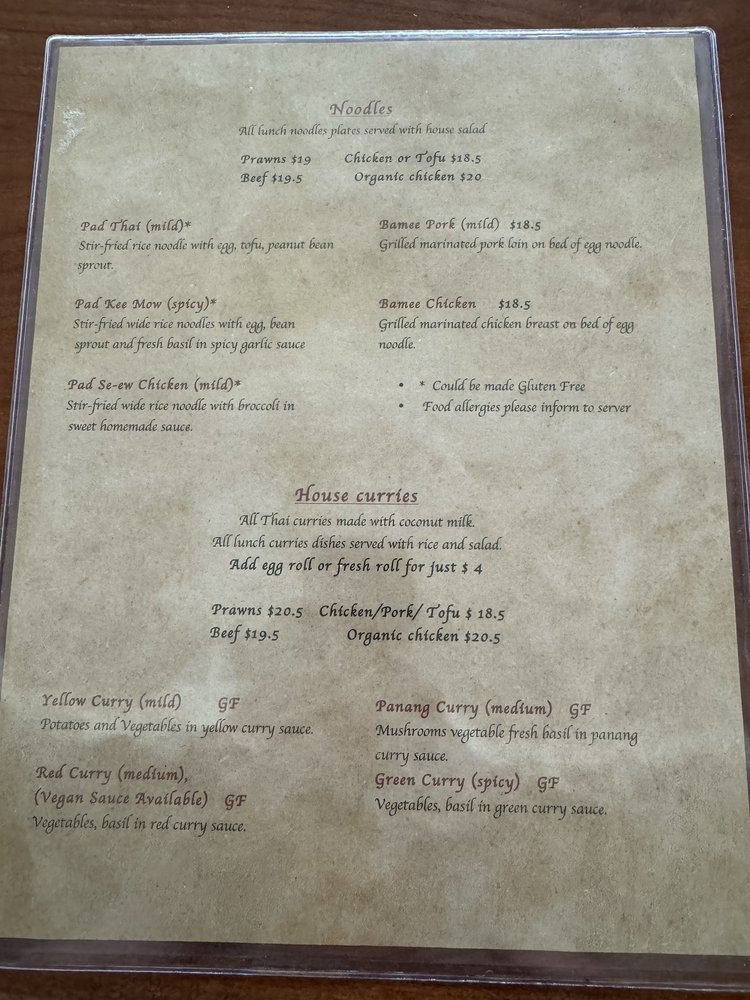 Noodles
All lunch noodles plates served with house salad
Prawns $19 Chicken or Tofu $18.5
Beef $19.5 Organic chicken $20
Pad Thai (mild)*
Stir-fried rice noodle with egg, tofu, peanut bean
sprout.
Pad Kee Mow (spicy)*
Stir-fried wide rice noodles with egg, bean
sprout and fresh basil in spicy garlic sauce
Pad Se-ew Chicken (mild)*
Stir-fried wide rice noodle with broccoli in
sweet homemade sauce.
Bamee Pork (mild) $18.5
Grilled marinated pork loin on bed of egg noodle.
Bamee Chicken $18.5
Grilled marinated chicken breast on bed of egg
noodle.
• * Could be made Gluten Free
• Food allergies please inform to server
House curries
All Thai curries made with coconut milk.
All lunch curries dishes served with rice and salad.
Add egg roll or fresh roll for just $ 4
Prawns $20.5 Chicken/Pork/ Tofu $ 18.5
Beef $19.5 Organic chicken $20.5
Yellow Curry (mild) GF
Potatoes and Vegetables in yellow curry sauce.
Red Curry (medium),
(Vegan Sauce Available) GF
Vegetables, basil in red curry sauce.
Panang Curry (medium) GF
Mushrooms vegetable fresh basil in panang
curry sauce.
Green Curry (spicy) GF
Vegetables, basil in green curry sauce.